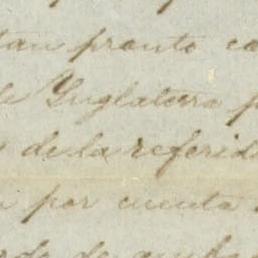 tan pronto co
de Inglaterra p
s de la referid
n por cuenta
de